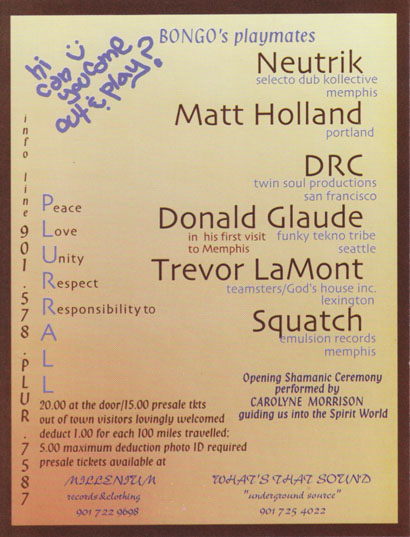 hi
can
you come
out & play?
BONGO's playmates
Neutrik
selecto dub kollective
memphis
Matt Holland
portland
DRC
twin soul productions
san francisco
Donald Glaude
in his first visit
to Memphis
funky tekno tribe
seattle
Trevor LaMont
teamsters/God's house inc.
lexington
Squatch
emulsion records
memphis
info line 901.578.PLUR.7587
Peace
Love
Unity
Respect
Responsibility to
A
L
L
Opening Shamanic Ceremony
performed by
CAROLYNE MORRISON
guiding us into the Spirit World
20.00 at the door/15.00 presale tkts
out of town visitors lovingly welcomed
deduct 1.00 for each 100 miles travelled;
5.00 maximum deduction photo ID required
presale tickets available at
MILLENIUM
records&clothing
901 722 9698
WHAT'S THAT SOUND
"underground source"
901 725 4022